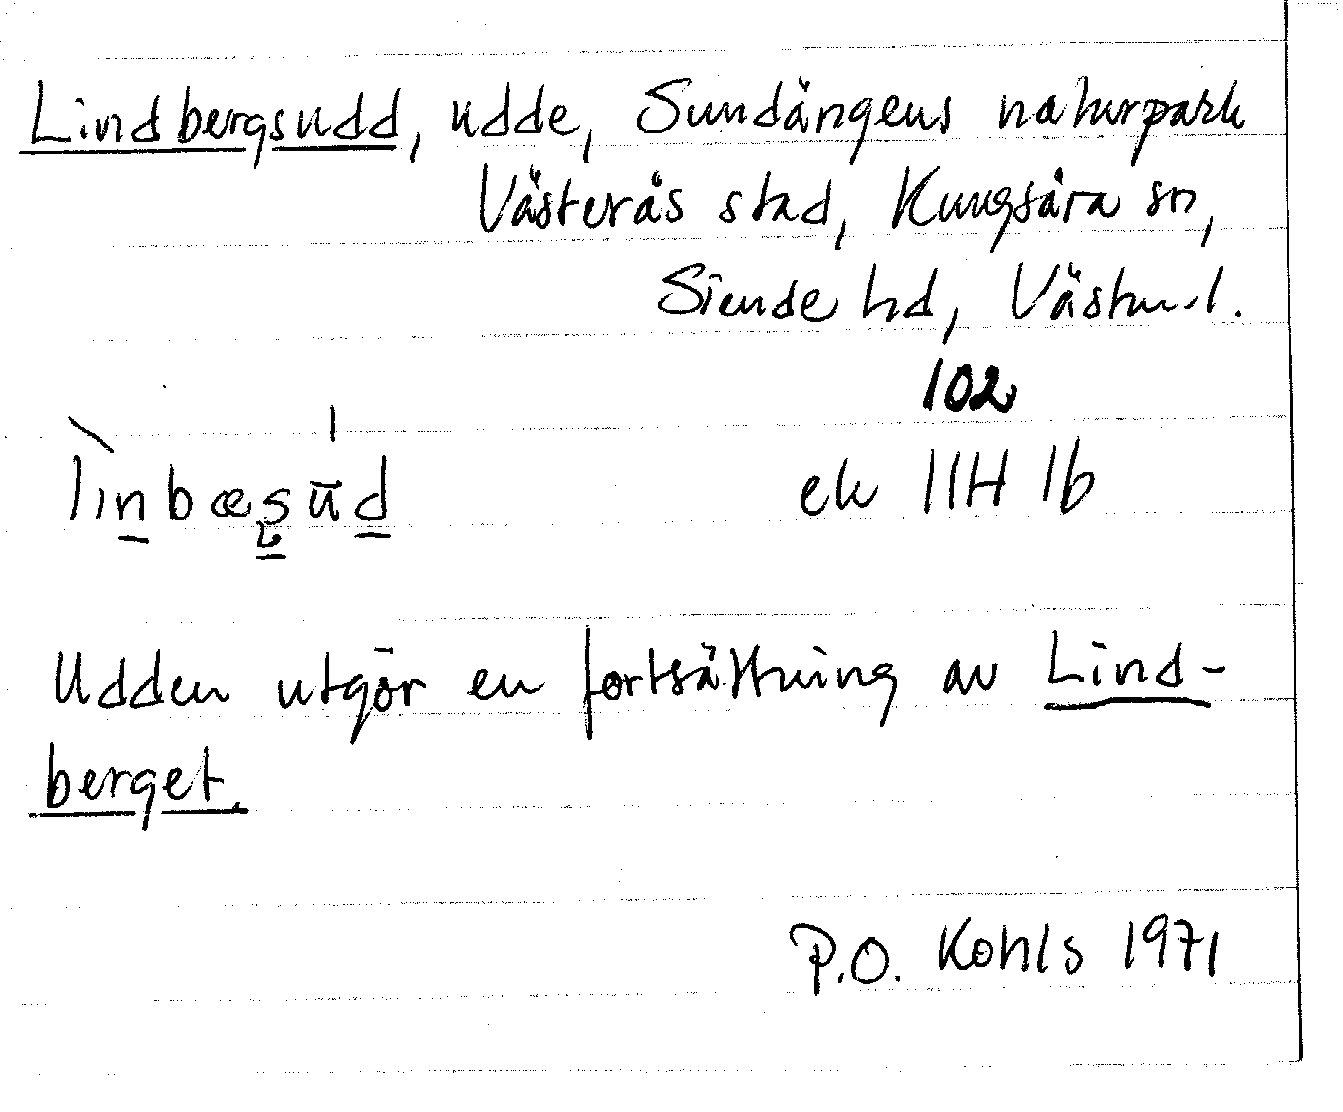 Lindbergsudd, udde, Sundängens naturpark
Västerås stad, Kungsåra sn,
Siende hd, Västm.l.
102
linbæsud ek 11H 1b
Udden utgör en fortsättning av Lind-
berget.
P.O. Kohls 1971